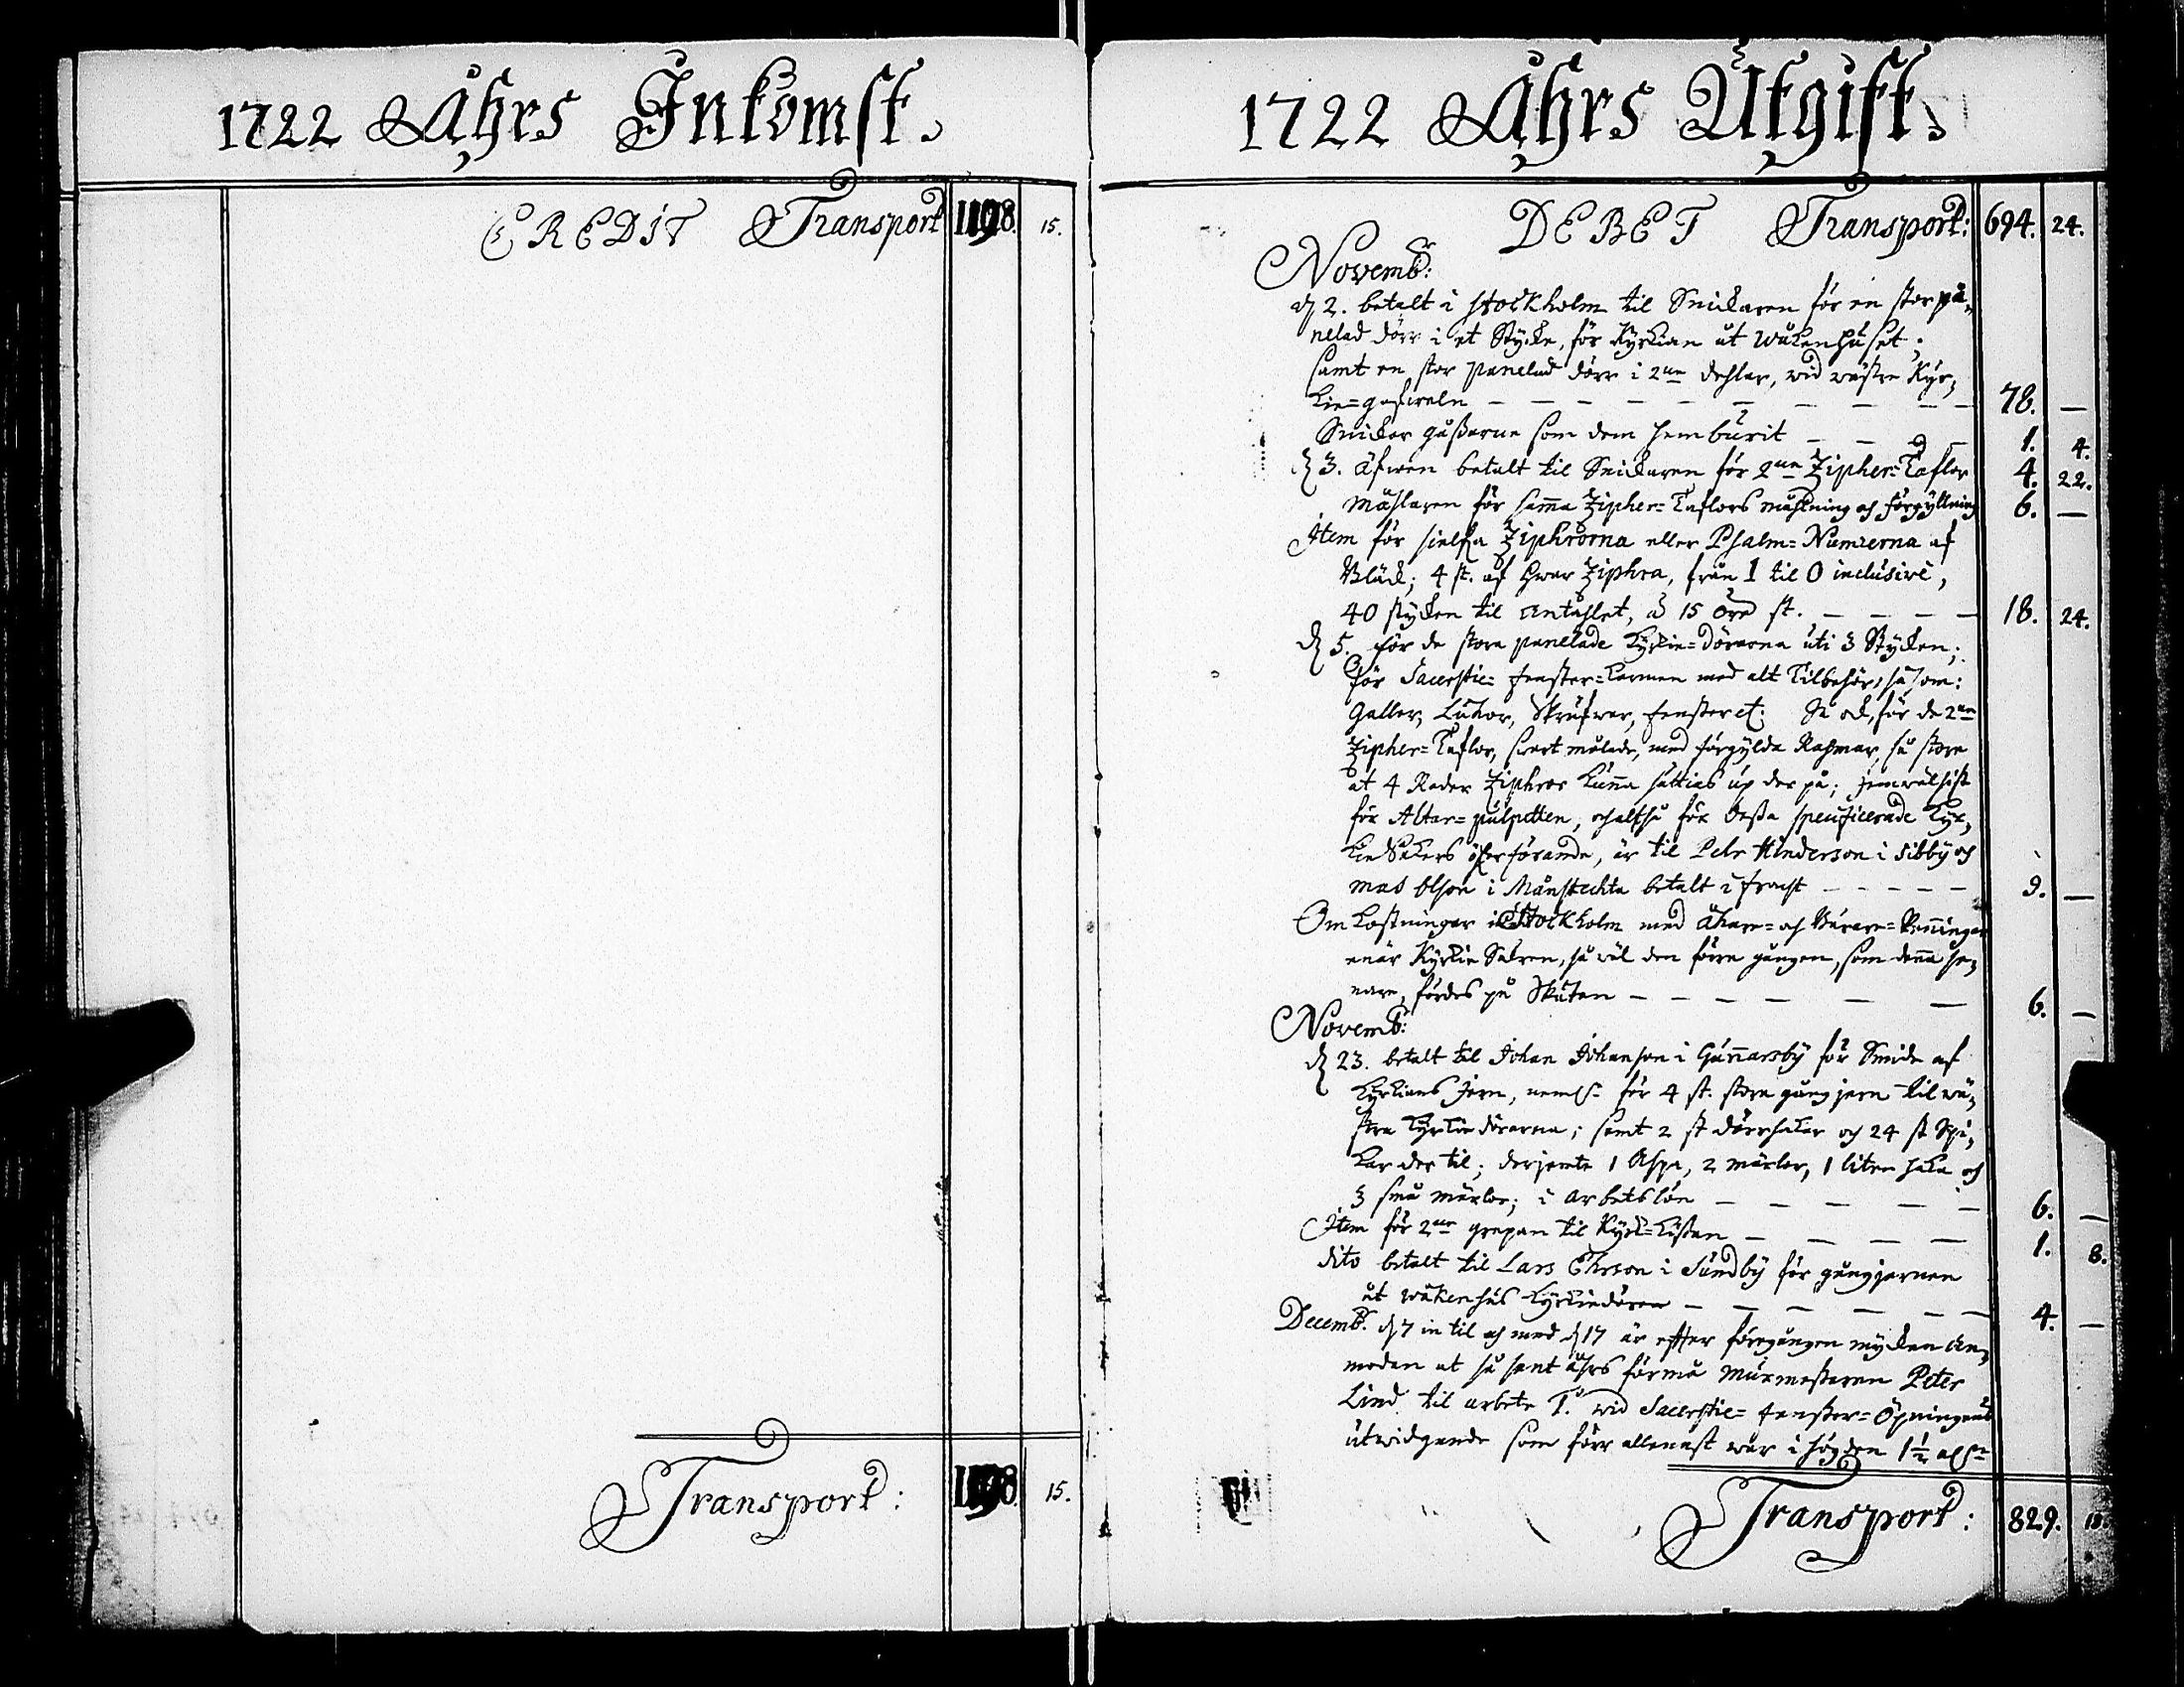 1722 Åhrs Inkomst.
CREDIT Transport 1198. 15.
Transport: 1198. 15.
1722 Åhrs Utgift.
DEBET Transport: 694. 24.
Novembr:
d 2. betalt i Stockholm til Snickaren för en stor på,,
nelad dörr i et Stycke, för Kyrkian åt Wåkenhuset;
samt en stor panelad dörr i 2ne dehlar, wid wästre Kyr,,
kie=gafweln — — — 78. —
Snickar gåßarne som dem hemburit — — — 1. 4.
d 3. äfwen betalt til Snickaren för 2ne Zipher=Taflor 4. 22.
Måhlaren för sama Zipher=Taflors måhlning och förgyllning 6. —
Item för sielfva Ziphrorna eller Psalm=Numrerna af
Bläck; 4 st. af hwar Ziphra, från 1 til 0 inclusive,
40 stycken til antahlet, à 15 öre st. — — — 18. 24.
d 5. för de stora panelade Kyrkie=dörarna uti 3 Stycken;
för Sacerstie=fenster=karmen med alt Tilbehör, så som:
Galler, Lukor, Skrufwar, fenster etc: Så ock, för de 2ne
Zipher=Taflor, swart målade, med förgylda Rahmar, så stora
at 4 Rader Ziphror kunna sättias up der på;
för Altar=pulpetten, och altså för deßa specificerade Kyr,,
kie Sakers öfwerförande, är til Petr Anderson i Sibby och
Mats Olson i Månstechta betalt i fracht — — — 9. —
Omkostningar i Stockholm med Åkare= och Bårare=Penningar
enär Kyrkie Saken, så wäl den förra gången, som denna se,,
nare, fördes på Skutan — — — 6. —
Novembr:
d 23. betalt til Johan Johanson i Gunnarsby för Smide af
Kyrkians Jern, neml. för 4 st. stora gång jern til wä,,
stra Kyrkie dörarna; samt 2 st dörrhakar och 24 st Spi,,
kar der til; derjemte 1 Haspe, 2 märlor, 1 liten haka och
3 små märlor; i arbetslön — — — 6. —
Item för 2ne grepan til Kyrk=Kistan — — — 1. 8.
dito betalt til Lars Ehrson i Sundby för gångjernen
åt wåkenhus Kyrkiedören — — — 4. —
Decembr. d 7 in til och med d 17 är efter föregången mycken an,,
modan at så sent åhrs förmå Murmestaren Peter
Lind til arbete wid Sacerstie=fenster=Öpningens
utwidgande som förr allenast war i högden 1½ aln
Transport: 829. 18.